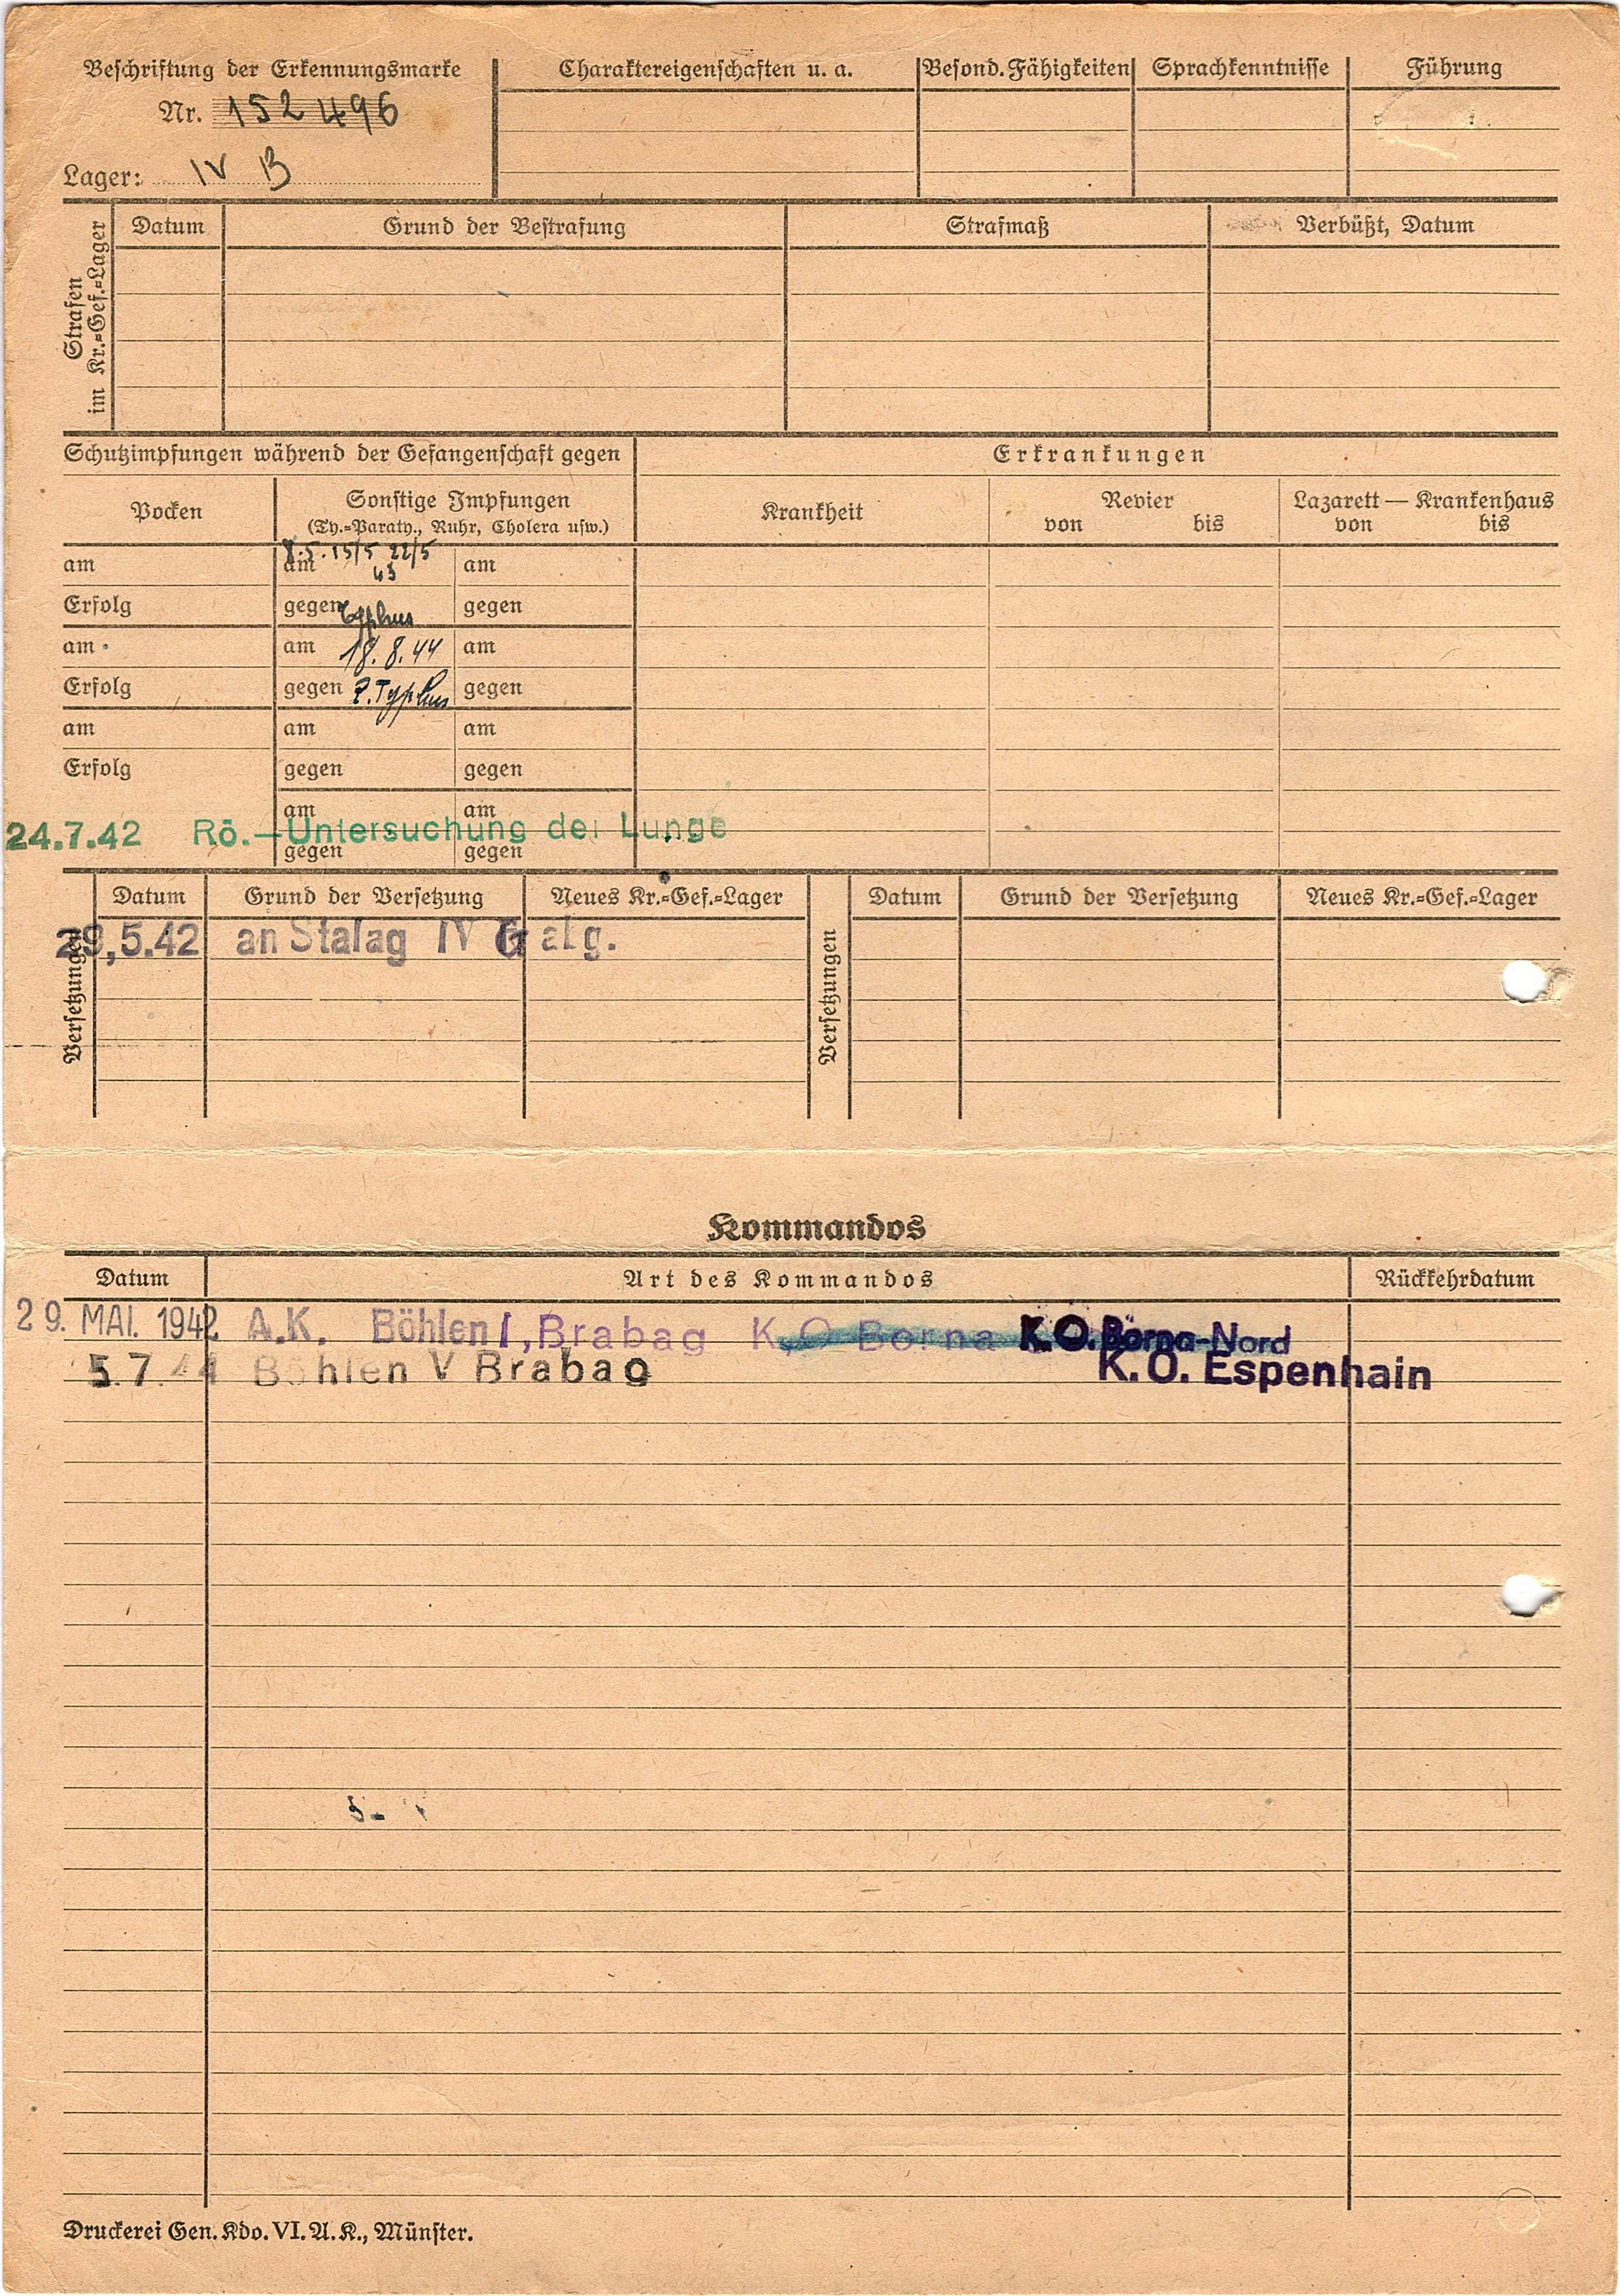 Beschriftung der Erkennungsmarke
Nr. 152496
Lager: IV B
Charaktereigenschaften u. a.
Besond. Fähigkeiten
Sprachkenntnisse
Führung
Strafen im Kr.=Gef.=Lager
Datum
Grund der Bestrafung
Strafmaß
Verbüßt, Datum
Schutzimpfungen während der Gefangenschaft gegen
Erkrankungen
Pocken
Sonstige Impfungen
(Ty.=Paraty., Ruhr, Cholera usw.)
Krankheit
Revier
von bis
Lazarett — Krankenhaus
von bis
am
am 8.5. 15/5 22/5 43
am
Erfolg
gegen Typhus
gegen
am
am 18.8.44
am
Erfolg
gegen P. Typhus
gegen
am
am
am
Erfolg
gegen
gegen
am
am
24.7.42 Rö.—Untersuchung der Lunge
gegen
gegen
Versetzungen
Datum
Grund der Versetzung
Neues Kr.=Gef.=Lager
Versetzungen
Datum
Grund der Versetzung
Neues Kr.=Gef.=Lager
29,5.42 an Stalag IV G
Kommandos
Datum
Art des Kommandos
Rückkehrdatum
29. MAI. 1942 A.K. Böhlen I, Brabag K.O Borna K.O. Borna-Nord
5.7.44 Böhlen V Brabag K.O. Espenhain
Druckerei Gen. Kdo. VI. A. K., Münster.